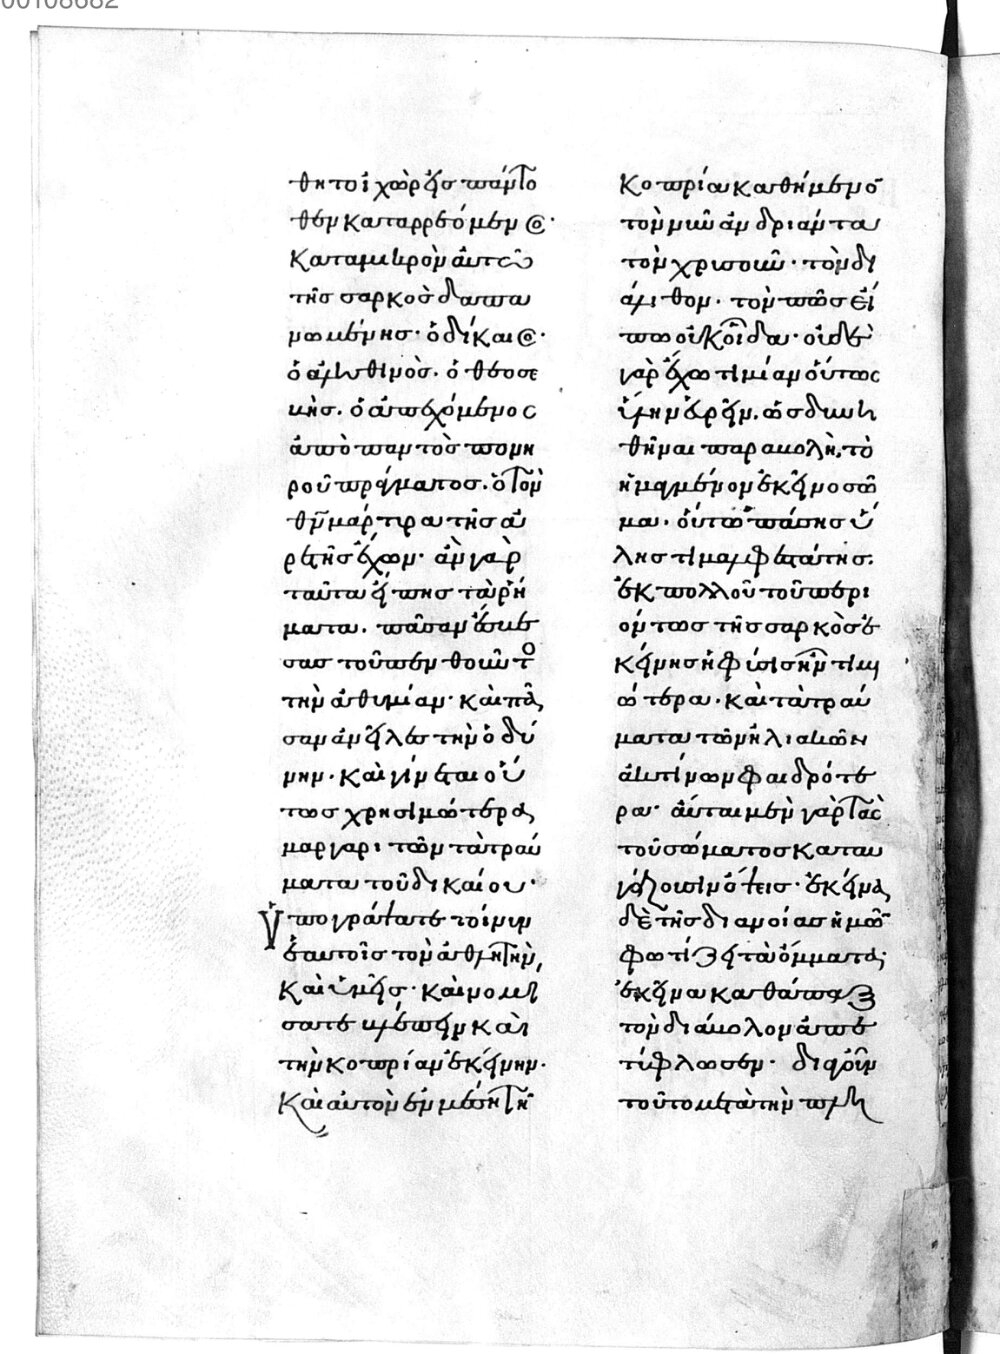 00108682
θητοι χωρεῖς πάντο
θεν καταρρεόμενος·
κατα μικρὸν αὐτῶ
τῆς σαρκὸς δαπα
νωμένης· ὁ δίκαιος·
ὁ ἀληθινός. ὁ θεοσε
βὴς. ὁ ἀπεχόμενος
ἀπὸ παντὸς πονη
ροῦ πράγματος. ὁ τὸν
θν̄ μάρτυρα τῆς ἀ
ρετῆς ἔχων· ἂν γὰρ
ταῦτα εἴπης τὰ ρή
ματα. πᾶσαν ἔσβε
σας τοῦ πενθοῦντο
τὴν ἀθυμίαν· καὶ πᾶ
σαν ἀνεῖλες τὴν ὀδύ
νην· καὶ γίνεται οὕ
τως χρησιμώτερα
μαργαριτῶν τὰ τραύ
ματα τοῦ δικαίου·
Ὑπογράψατε τοίνυν
ἑαυτοῖς τὸν ἀθλητὴν,
καὶ ὑμεῖς· καὶ νομί
σατε βλέπειν καὶ
τὴν κοπρίαν ἐκείνην·
καὶ αὐτὸν ἐν μέση τῆ
κοπρία καθήμενο
τὸν μὲν ἀνδριάντα
τὸν χρυσοῦν· τὸν δι
άλιθον· τὸν πῶς εἴ
πω οὐκ οἶδα· οὐδὲ
γὰρ ἔχω τιμίαν οὕτως
ὕλην εὑρεῖν. ὡς δυνη
θῆναι παραβολὴ, τὸ
ἡμαγμένον ἐκεῖνο σῶ
μα· οὕτω πάσης ὕ
λης τιμαλφεστάτης.
ἐκ πολλοῦ τοῦ περι
όντος τῆς σαρκὸς ἐ
κείνης ἡ φύσις ἦν τιμι
ωτέρα· καὶ τὰ τραύ
ματα τῶν ἡλιακῶν
ἀκτίνων φαιδρότε
ρα· αὗται μὲν γὰρ τὰς
τοῦ σώματος καταυ
γάζουσιν ὄψεις· ἐκεῖνα
δὲ τῆς διανοίας ἡμῶ
φωτίζει τὰ ὄμματα·
ἐκεῖνα καθάπαξ
τὸν διάβολον ἀπε
τύφλωσεν· διὰ γοῦν
τοῦτο μετὰ τὴν πλη